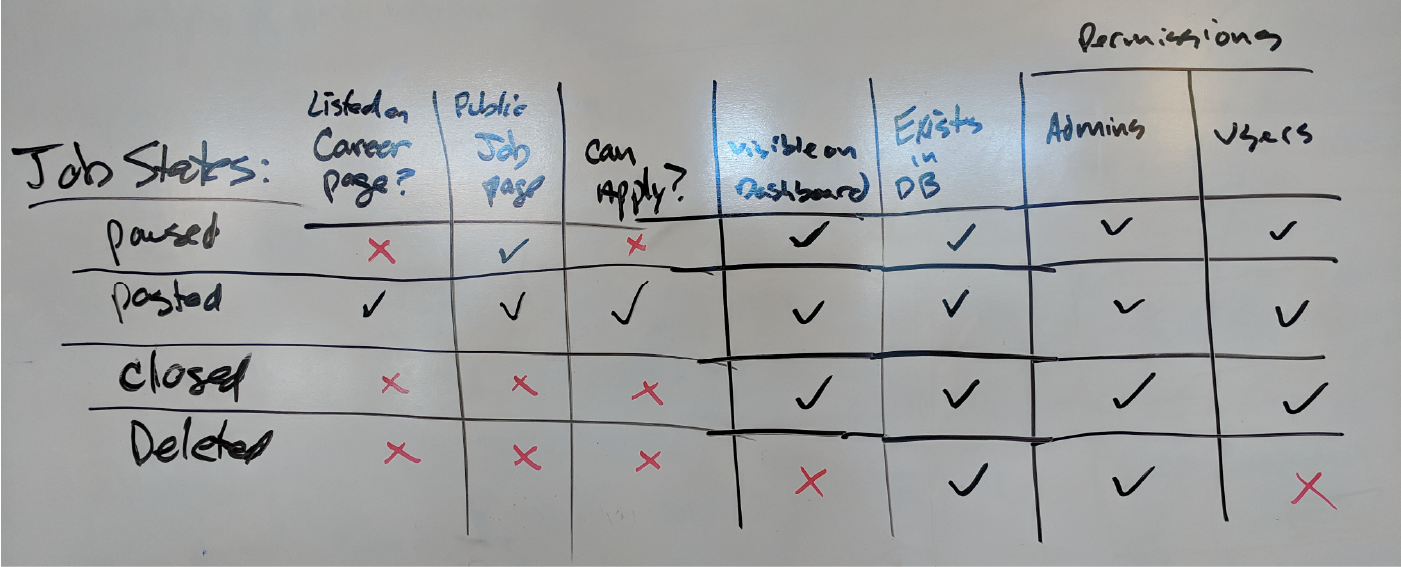 Permissions
Listed on Career page? | Public Job page | Can Apply? | Visible on Dashboard | Exists in DB | Admins | Users
Job States:
paused ✗ ✓ ✗ ✓ ✓ ✓ ✓
posted ✓ ✓ ✓ ✓ ✓ ✓ ✓
closed ✗ ✗ ✗ ✓ ✓ ✓ ✓
Deleted ✗ ✗ ✗ ✗ ✓ ✓ ✗